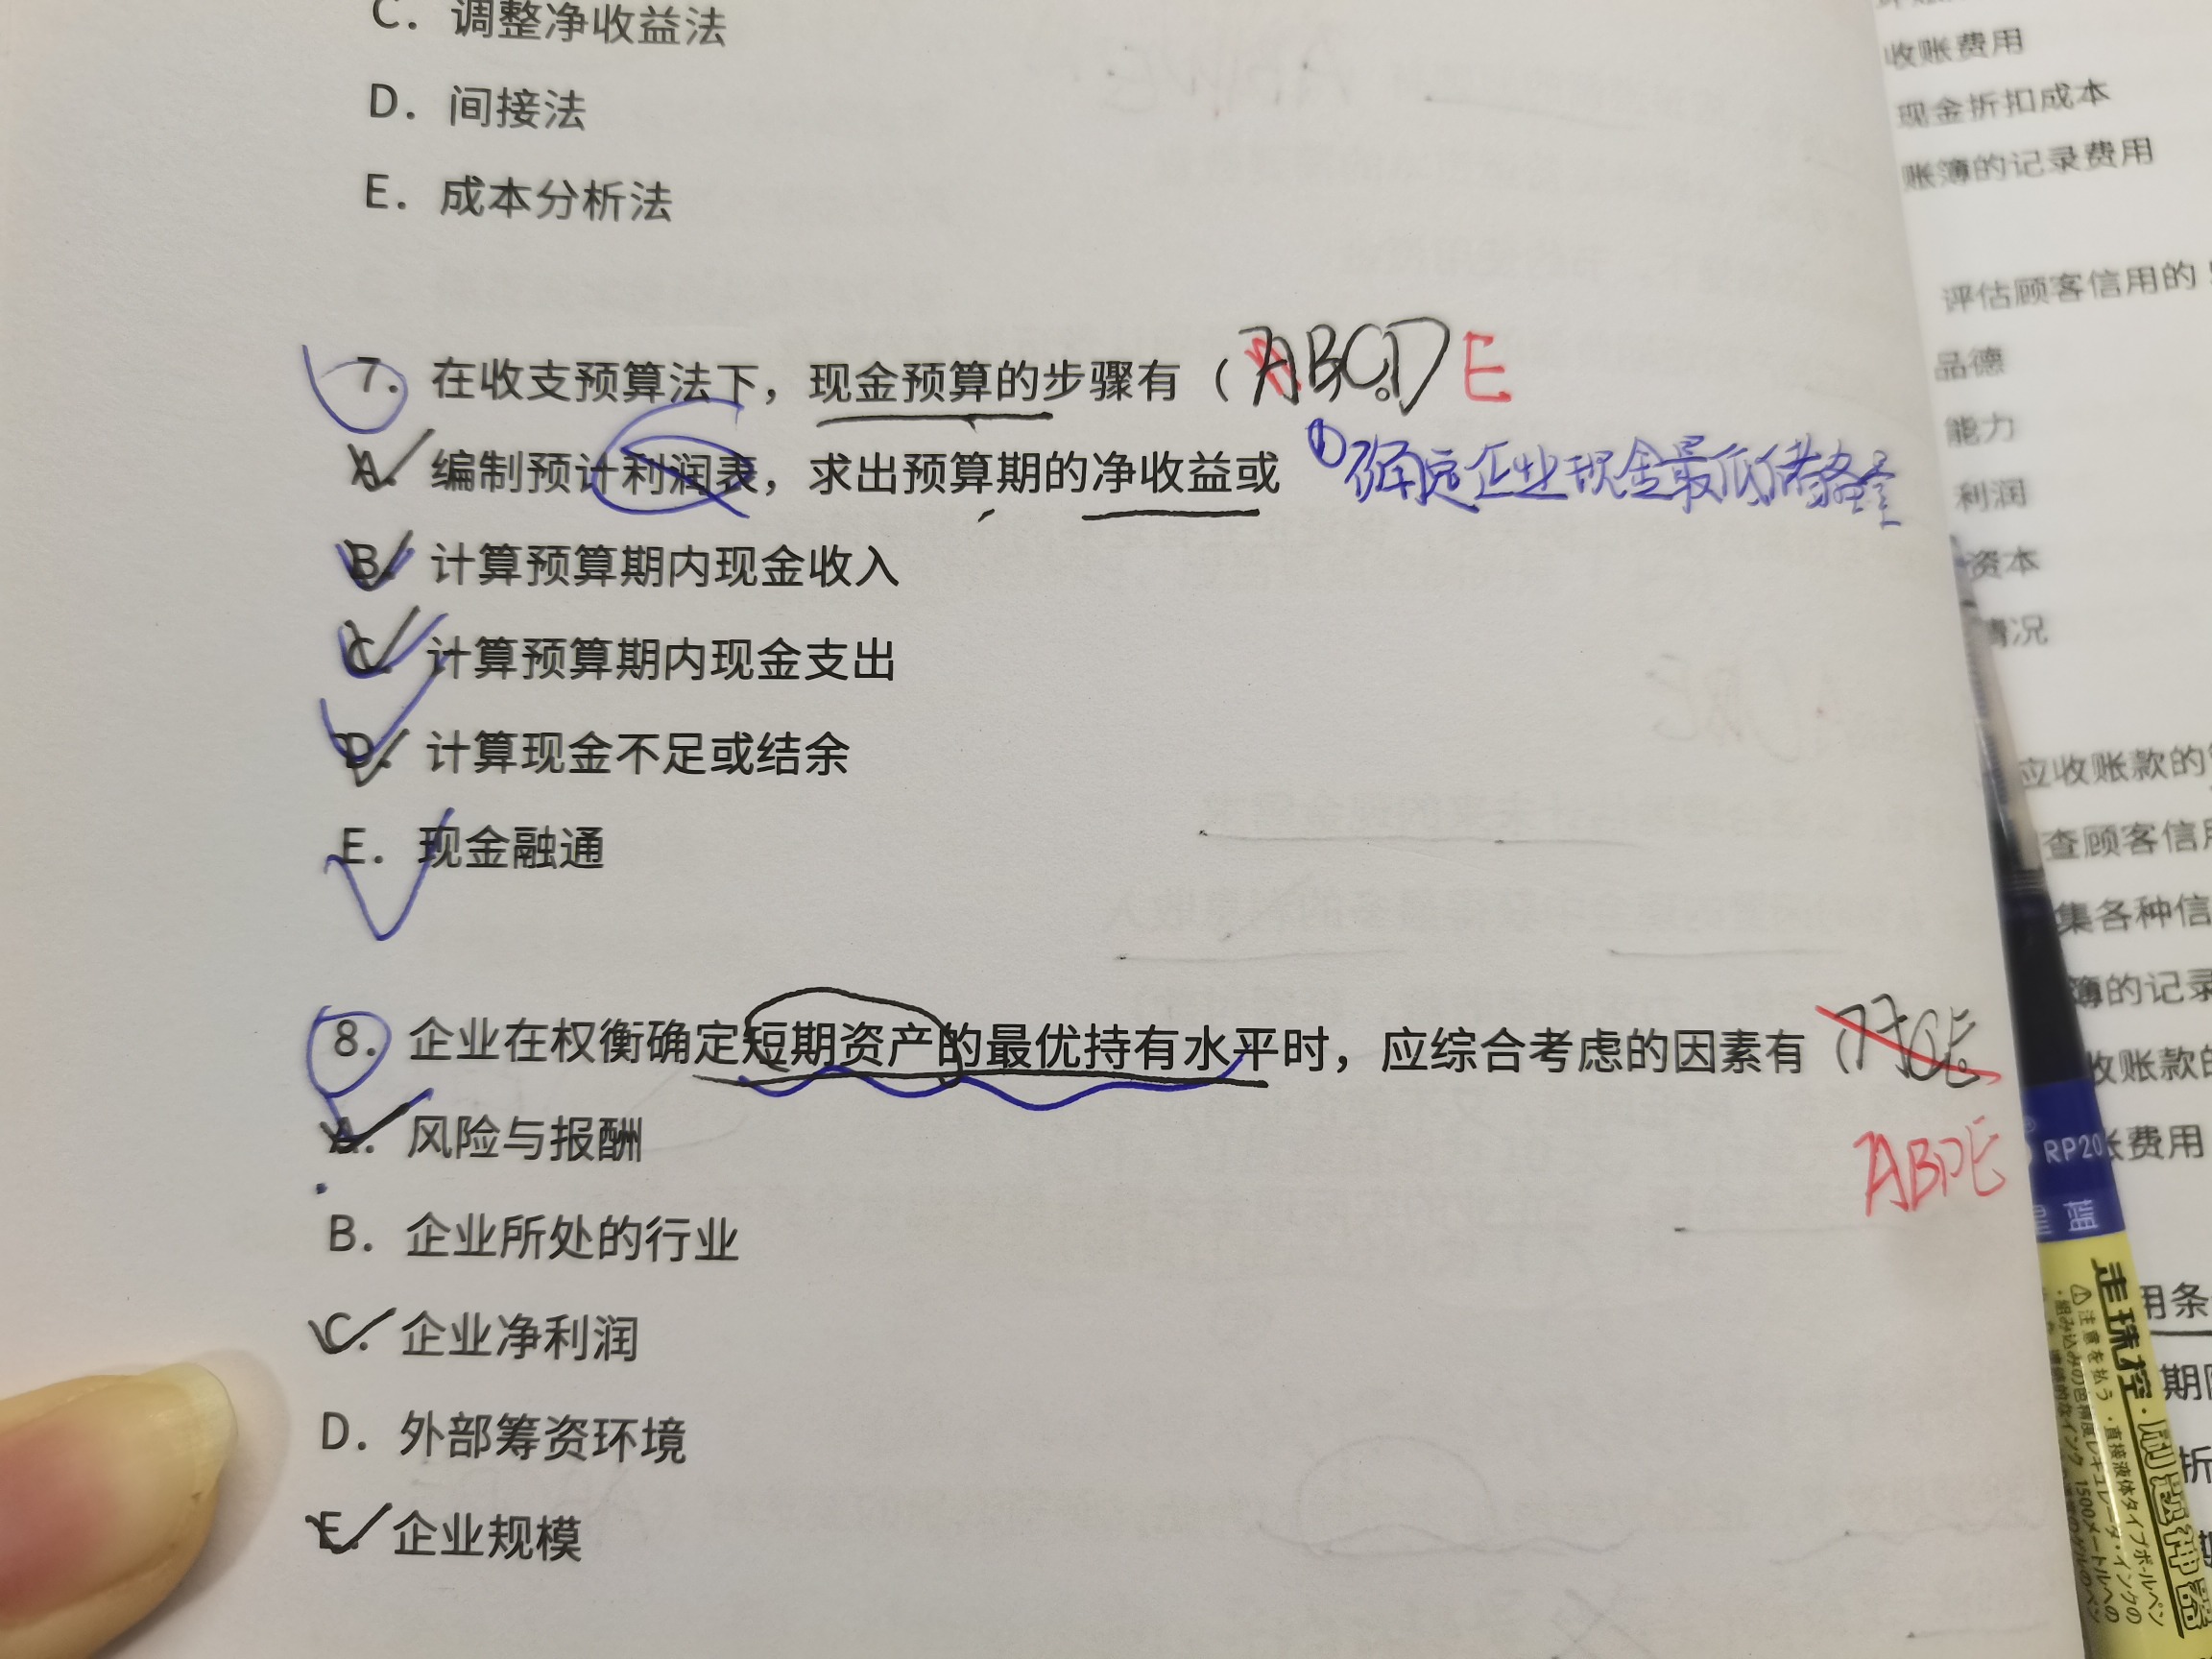 C. 调整净收益法
D. 间接法
E. 成本分析法
7. 在收支预算法下，现金预算的步骤有（ ABCD E
A. 编制预计利润表，求出预算期的净收益或 ①确定企业现金最低储备量
B. 计算预算期内现金收入
C. 计算预算期内现金支出
D. 计算现金不足或结余
E. 现金融通
8. 企业在权衡确定短期资产的最优持有水平时，应综合考虑的因素有（ACE
ABDE
A. 风险与报酬
B. 企业所处的行业
C. 企业净利润
D. 外部筹资环境
E. 企业规模
收账费用
现金折扣成本
账簿的记录费用
评估顾客信用的
品德
能力
利润
资本
情况
应收账款的
查顾客信用
集各种信
簿的记录
收账款的
费用
用条
期
折
RP20
蓝
走珠控·刷题神器
注意を払う·直接液体タイプボールペン